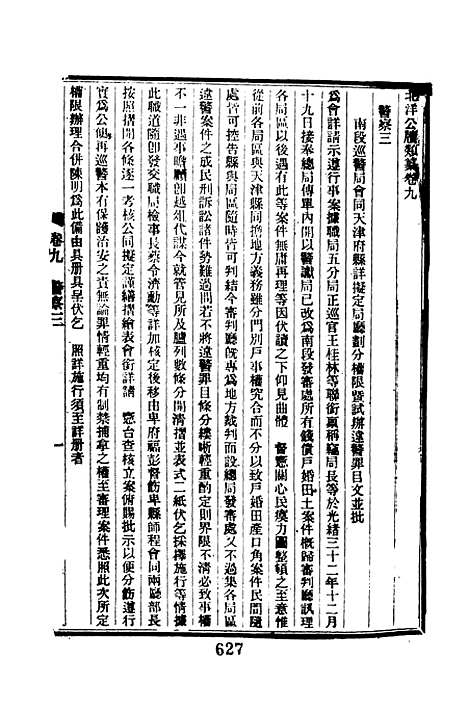 北洋公牘類纂卷九
警察三
南段巡警局會同天津府縣詳擬定局廳劃分權限暨試辦違警罪目文並批
爲會詳請示遵行事案據職局五分局正巡官王桂林等聯銜稟稱竊局長等於光緒三十二年十二月
十九日接奉總局傳單內開以警讞局已改爲南段發審處所有錢債戶婚田土案件概歸審判廳訊理
各局區以後遇有此等案件無庸再理等因伏讀之下仰見曲體 督憲關心民瘼力圖整頓之至意惟
從前各局區與天津縣同擔地方義務雖分門別戶事權究合而不分以致戶婚田產口角案件民間隨
處皆可控告縣與局區隨時皆可判結今審判廳旣專爲地方裁判而設總局發審處又不過集各局區
違警案件之成民刑訴訟諸件勢難過問若不將違警罪目條分縷晰輕重酌定則界限不淸必致事權
不一非遇事瞻顧卽越俎代謀今就管見所及臚列數條分開淸摺並表式二紙伏乞採擇施行等情據
此職道隨卽發交職局檢事長蔡令濟勳等詳加核定後移由卑府福彭督飭卑縣師程會同兩廳部長
按照摺開各條逐一考核公同擬定謹繕摺繪表會銜詳請 憲台查核立案俯賜批示以便分飭遵行
實爲公便再巡警本有保護治安之責無論罪情輕重均有制禁捕拿之權至審理案件悉照此次所定
權限辦理合併陳明爲此備由具册具呈伏乞 照詳施行須至詳册者
卷九 警察三
一
627